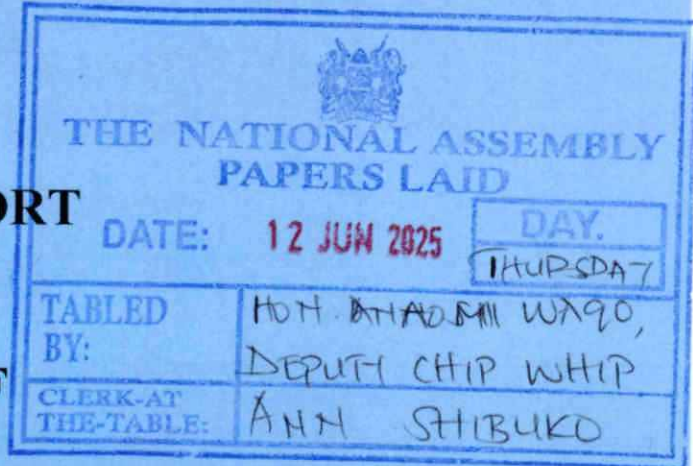 THE NATIONAL ASSEMBLY
PAPERS LAID
ORT
DATE: 12 JUN 2025 DAY.
THURSDAY
TABLED BY: HON. WAQO,
DEPUTY CHIP WHIP
CLERK-AT THE-TABLE: ANN SHIBUKO